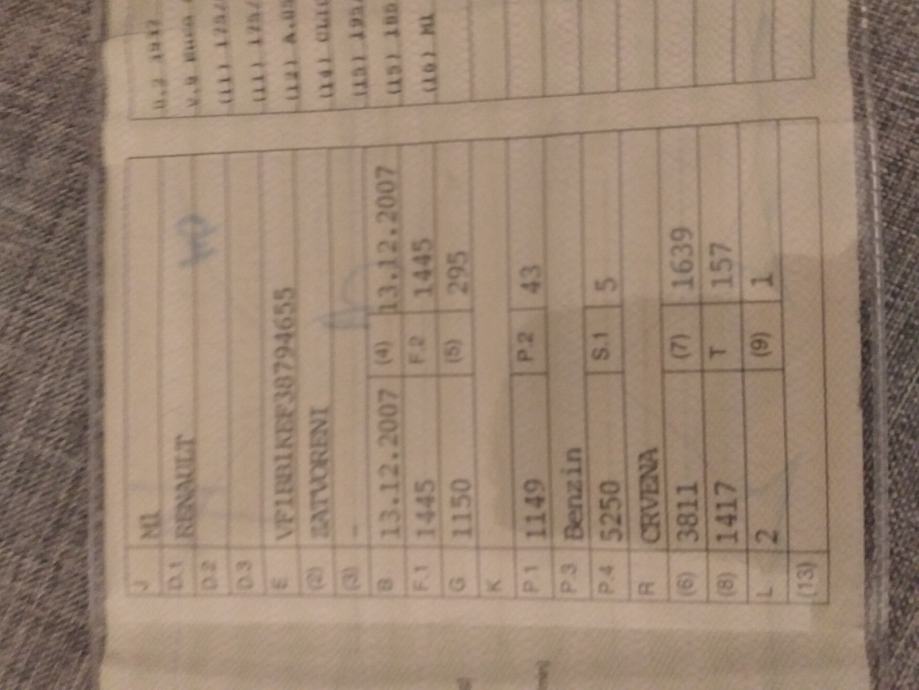 J M1
D.1 RENAULT
D.2
D.3
E VF1BB1KEF38794655
(2) ZATVORENI
(3) -
B 13.12.2007 (4) 13.12.2007
F.1 1445 F.2 1445
G 1150 (5) 295
K
P.1 1149 P.2 43
P.3 Benzin
P.4 5250 S.1 5
R CRVENA
(6) 3811 (7) 1639
(8) 1417 T 157
L 2 (9) 1
(13)
(11)
(11)
(12)
(14)
(15)
(15)
(16) M1